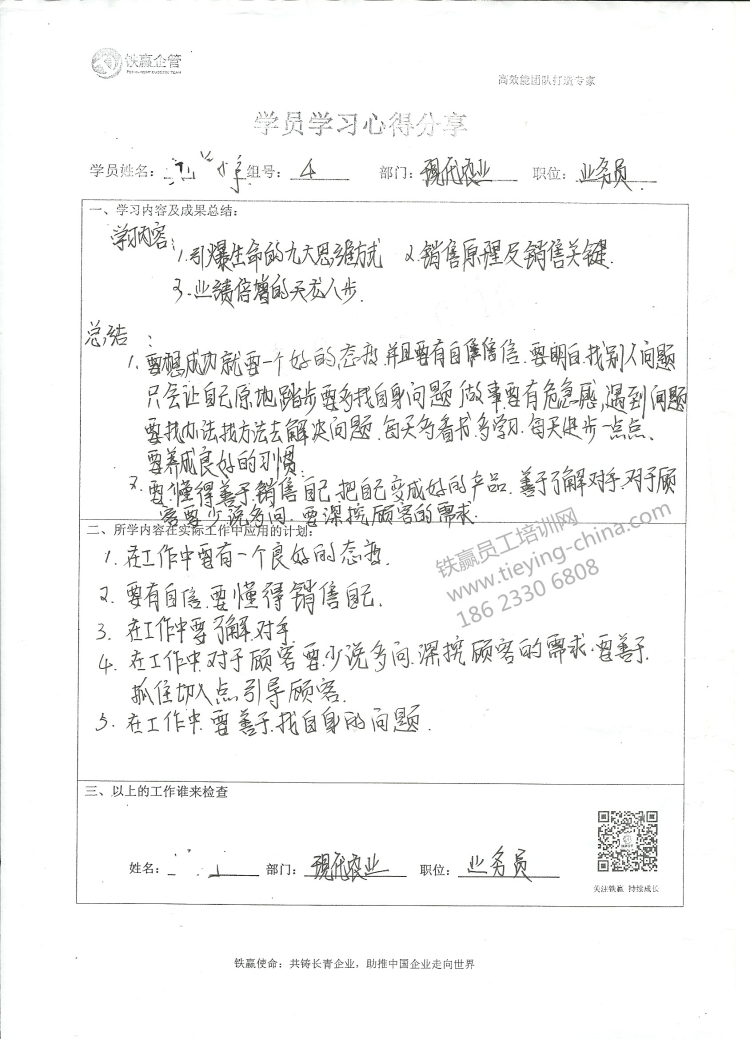 铁赢企管
高效能团队打造专家
学员学习心得分享
学员姓名: 组号: 4 部门: 现代农业 职位: 业务员
一、学习内容及成果总结:
学习内容: 1.引爆生命的九大思维方式 2.销售原理及销售关键.
3.业绩倍增的天龙八步.
总结:
1.要想成功就要一个好的态度.并且要有自信.要明白.找别人问题
只会让自己原地踏步要多找自身问题.做事要有危急感.遇到问题
要找办法找方法去解决问题.每天多看书.多学习.每天进步一点点.
要养成良好的习惯.
2.要懂得善于销售自己.把自己变成好的产品.善于了解对手.对于顾
客要少说多问.要深挖顾客的需求.
二、所学内容在实际工作中应用的计划:
1.在工作中要有一个良好的态度.
2.要有自信.要懂得销售自己.
3.在工作中要了解对手.
4.在工作中.对于顾客要少说多问.深挖顾客的需求.要善于
抓住切入点引导顾客.
5.在工作中.要善于找自身的问题.
铁赢员工培训网
www.tieying-china.com
186 2330 6808
三、以上的工作谁来检查
姓名: 部门: 现代农业 职位: 业务员
关注铁赢 持续成长
铁赢使命: 共铸长青企业,助推中国企业走向世界